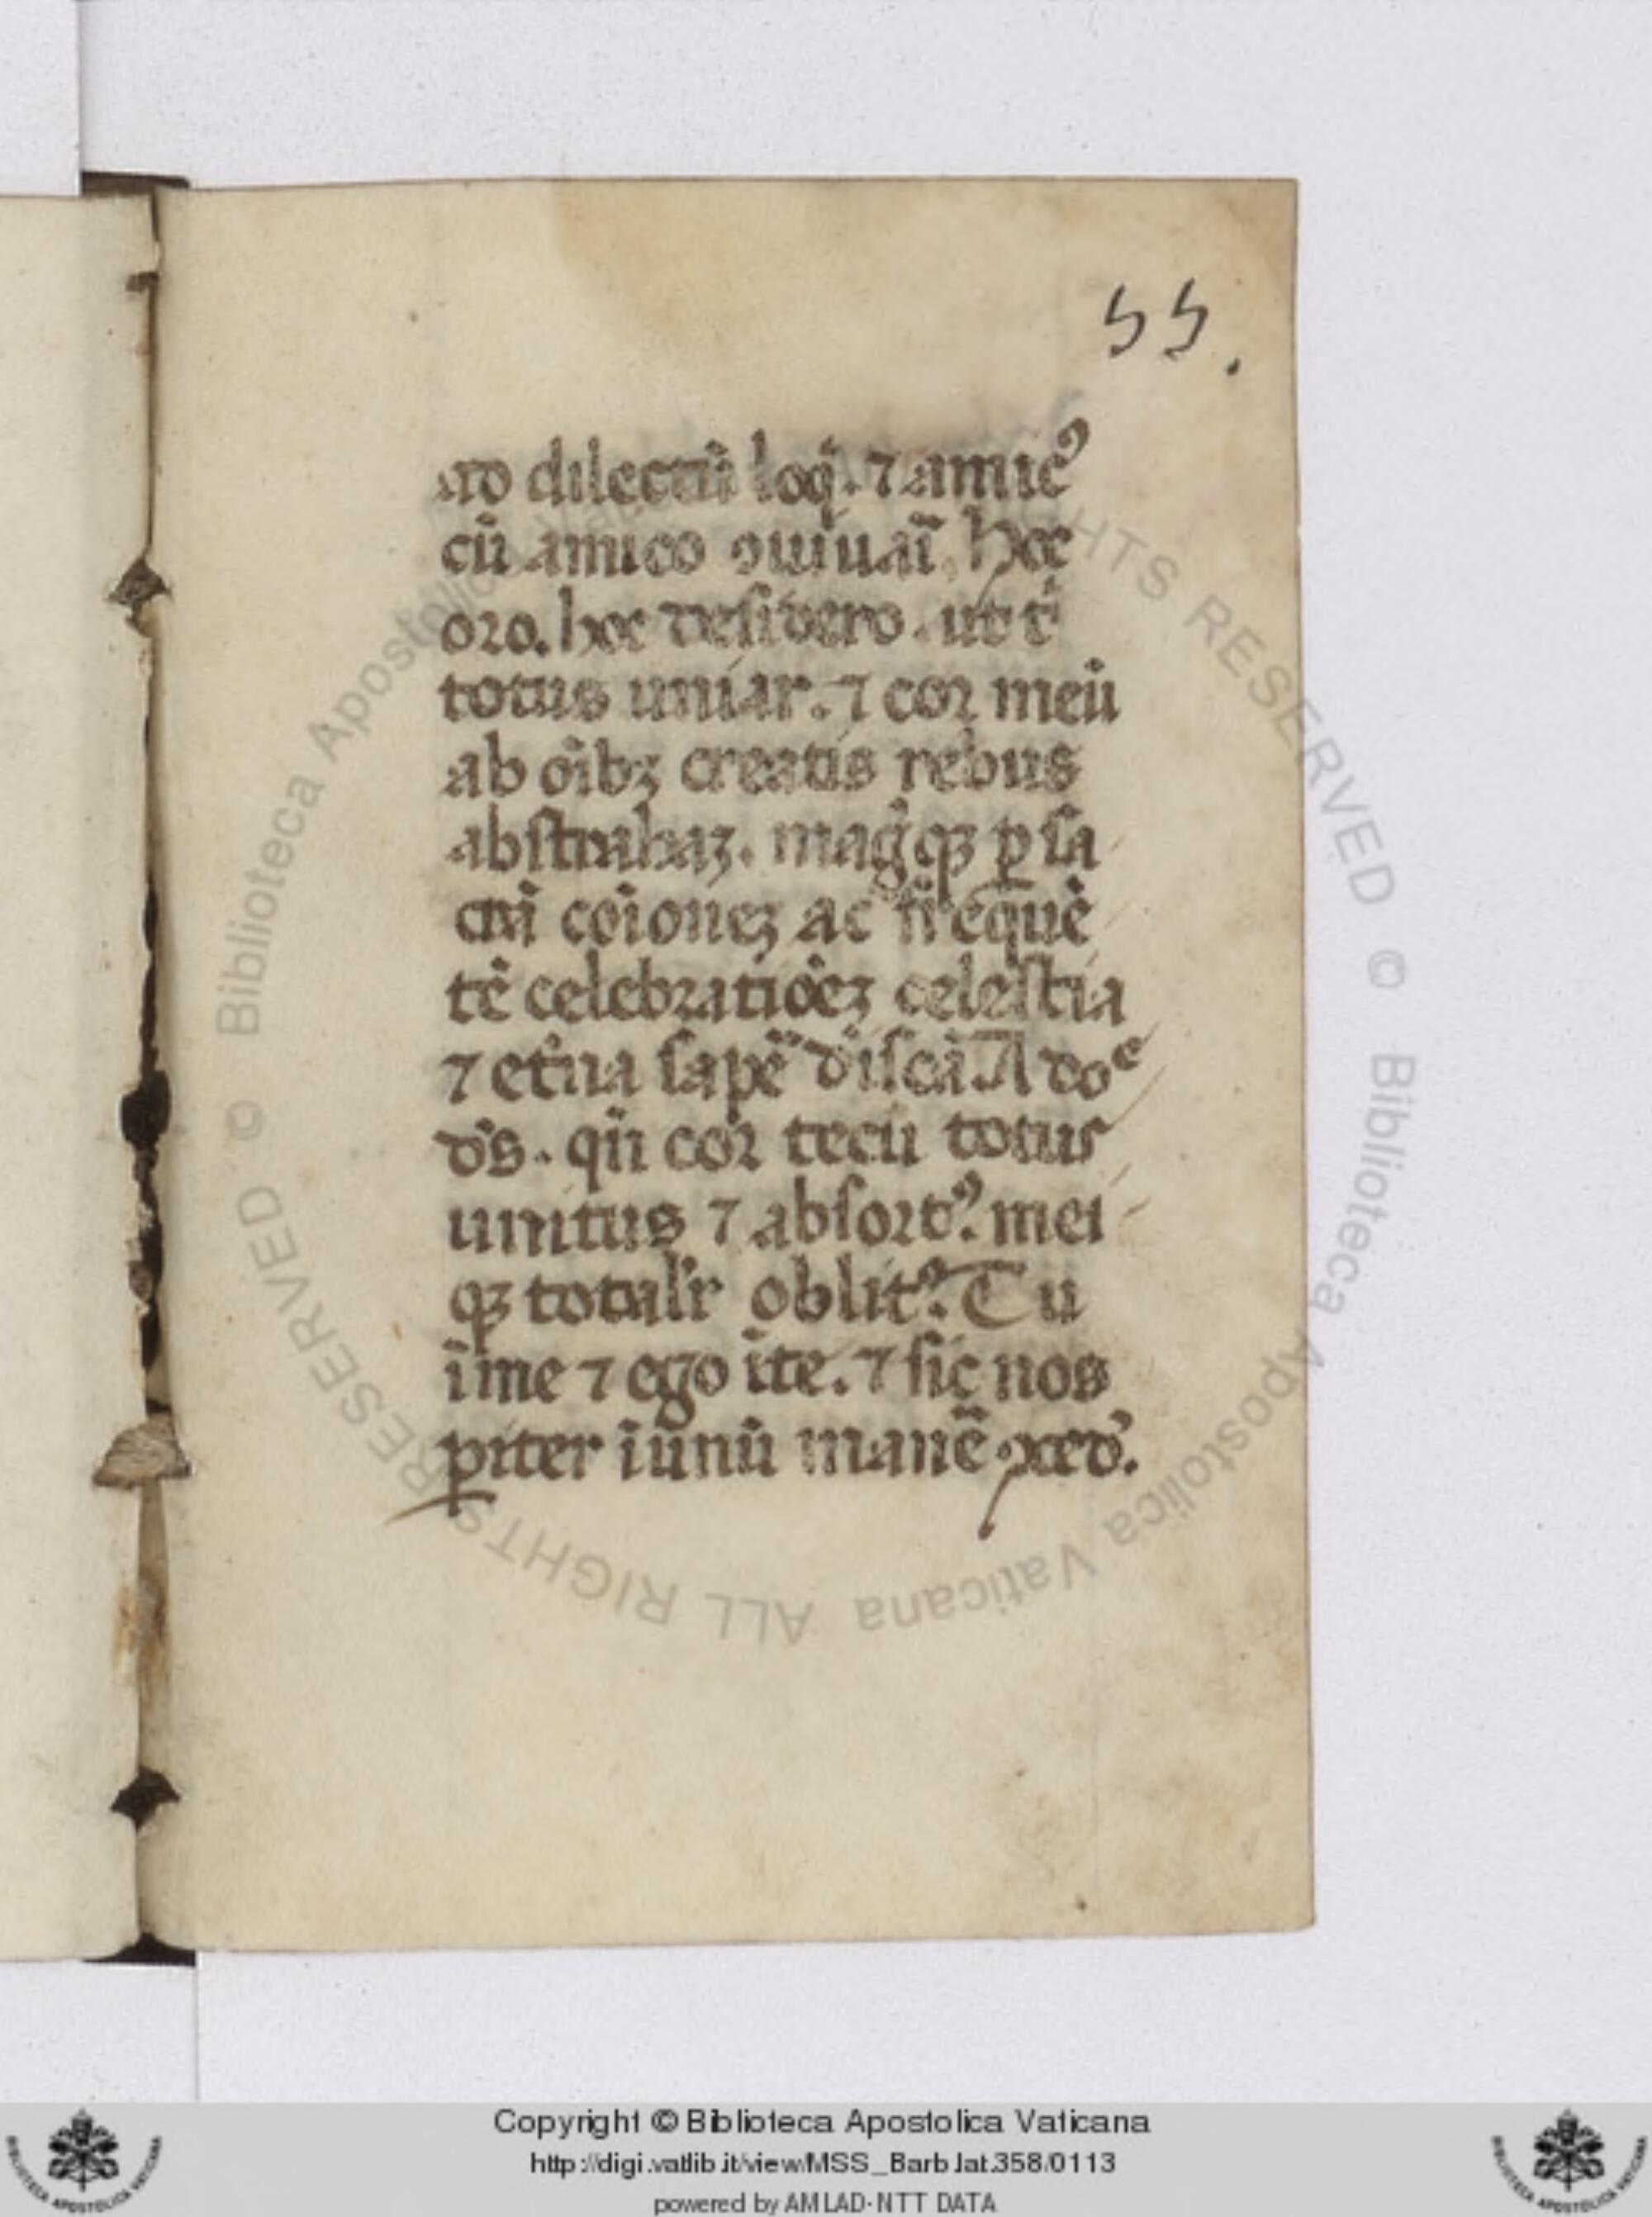 55.
.ito dilectū loq̄. ⁊ amicꝰ
cū amico ꝯuiuaī. hoc
oro. hoc desidero. ut tⁱ
totus uniar. ⁊ cor meū
ab oībꝫ creatis rebus
abstrahaꝫ. magⁱsqꝫ ꝑ sa
crā coīoneꝫ ac freque̅
te̅ celebratiōeꝫ celestia
⁊ et̄na sape̅ discā. A doᵉ
ds̄. qn̄ cor tecū totus
unitus ⁊ absortꝰ. mei
qꝫ totalr̄ oblitꝰ. Tu
ī me ⁊ ego ī te. ⁊ sic nos
ꝑiter ī unū mane̅ ꝯced̓.
© Biblioteca Apostolica Vaticana ALL RIGHTS RESERVED © Biblioteca Apostolica Vaticana ALL RIGHTS RESERVED
Copyright © Biblioteca Apostolica Vaticana
http://digi.vatlib.it/view/MSS_Barb.lat.358/0113
powered by AMLAD-NTT DATA
BIBLIOTECA APOSTOLICA VATICANA
BIBLIOTECA APOSTOLICA VATICANA